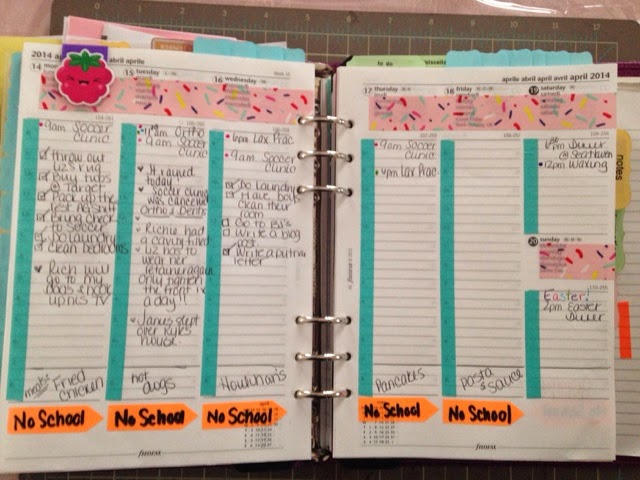 2014 april
abril aprile
14 mon
15 tuesday
16 wednesday
9am Soccer
Clinic
throw out
Liz's rug
Buy tubs
@ Target
Pack up the
Bring check
to Soccer
Do laundry
clean bedrooms
Rich will
go to my
dads & hook
up his TV
meals:
Fried
Chicken
No School
Ortho
9am Soccer
Clinic
It rained
today
Soccer clinic
was canceled
Ortho & Dentist
Richie had
a cavity filled
Liz has to
wear her
retainer again
Only
the front
a day!!
James slept
over Kyle's
house.
hot
dogs
No School
6pm Lax Prac
9am Soccer
Clinic
Do laundry
Have boys
clean their
room
Go to BJ's
Write a blog
post
Write a
letter
Houlihan's
No School
filofax
aprile abril april avril april 2014
17 thursday
18 friday
19 saturday
9am Soccer
Clinic
4pm Lax Prac
Pancakes
No School
Pasta
& sauce
No School
Dinner
12pm Waxing
20 sunday
Easter!
2pm Easter
Dinner
filofax
to do
notes